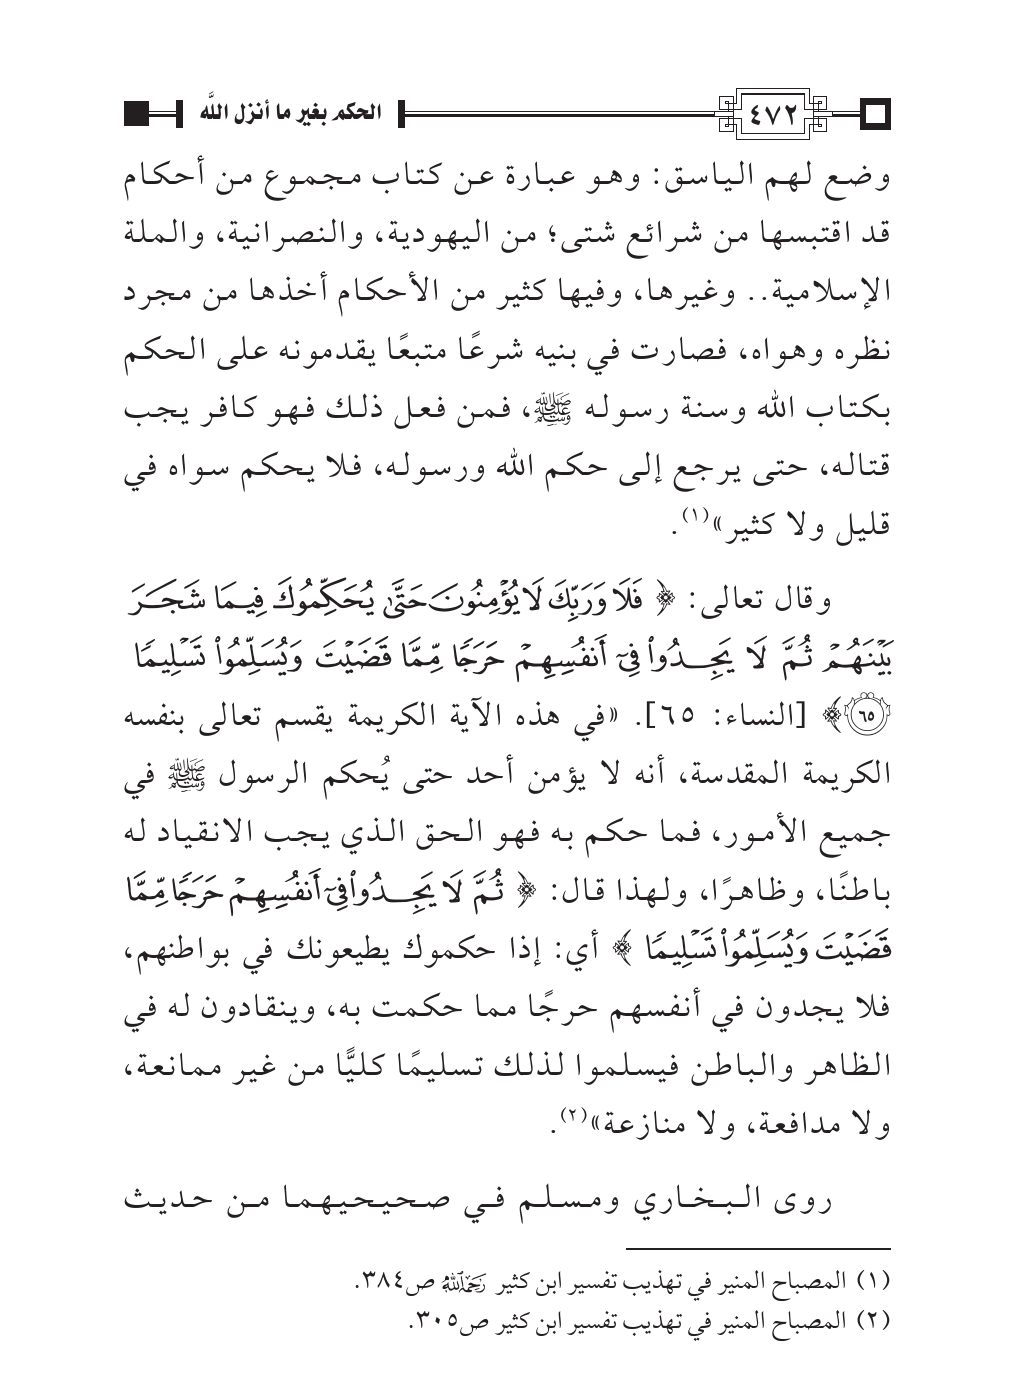 ٤٧٢ الحكم بغير ما أنزل اللَّه
وضع لهم الياسق: وهو عبارة عن كتاب مجموع من أحكام
قد اقتبسها من شرائع شتى؛ من اليهودية، والنصرانية، والملة
الإسلامية.. وغيرها، وفيها كثير من الأحكام أخذها من مجرد
نظره وهواه، فصارت في بنيه شرعًا متبعًا يقدمونه على الحكم
بكتاب الله وسنة رسوله ﷺ، فمن فعل ذلك فهو كافر يجب
قتاله، حتى يرجع إلى حكم الله ورسوله، فلا يحكم سواه في
قليل ولا كثير»(١).
وقال تعالى: ﴿ فَلَا وَرَبِّكَ لَا يُؤْمِنُونَ حَتَّىٰ يُحَكِّمُوكَ فِيمَا شَجَرَ
بَيْنَهُمْ ثُمَّ لَا يَجِدُوا۟ فِىٓ أَنفُسِهِمْ حَرَجًا مِّمَّا قَضَيْتَ وَيُسَلِّمُوا۟ تَسْلِيمًا
٦٥ ﴾ [النساء: ٦٥]. «في هذه الآية الكريمة يقسم تعالى بنفسه
الكريمة المقدسة، أنه لا يؤمن أحد حتى يُحكم الرسول ﷺ في
جميع الأمور، فما حكم به فهو الحق الذي يجب الانقياد له
باطنًا، وظاهرًا، ولهذا قال: ﴿ ثُمَّ لَا يَجِدُوا۟ فِىٓ أَنفُسِهِمْ حَرَجًا مِّمَّا
قَضَيْتَ وَيُسَلِّمُوا۟ تَسْلِيمًا ﴾ أي: إذا حكموك يطيعونك في بواطنهم،
فلا يجدون في أنفسهم حرجًا مما حكمت به، وينقادون له في
الظاهر والباطن فيسلموا لذلك تسليمًا كليًّا من غير ممانعة،
ولا مدافعة، ولا منازعة»(٢).
روى البخاري ومسلم في صحيحيهما من حديث
(١) المصباح المنير في تهذيب تفسير ابن كثير رَحِمَهُ اللَّهُ ص٣٨٤.
(٢) المصباح المنير في تهذيب تفسير ابن كثير ص٣٠٥.